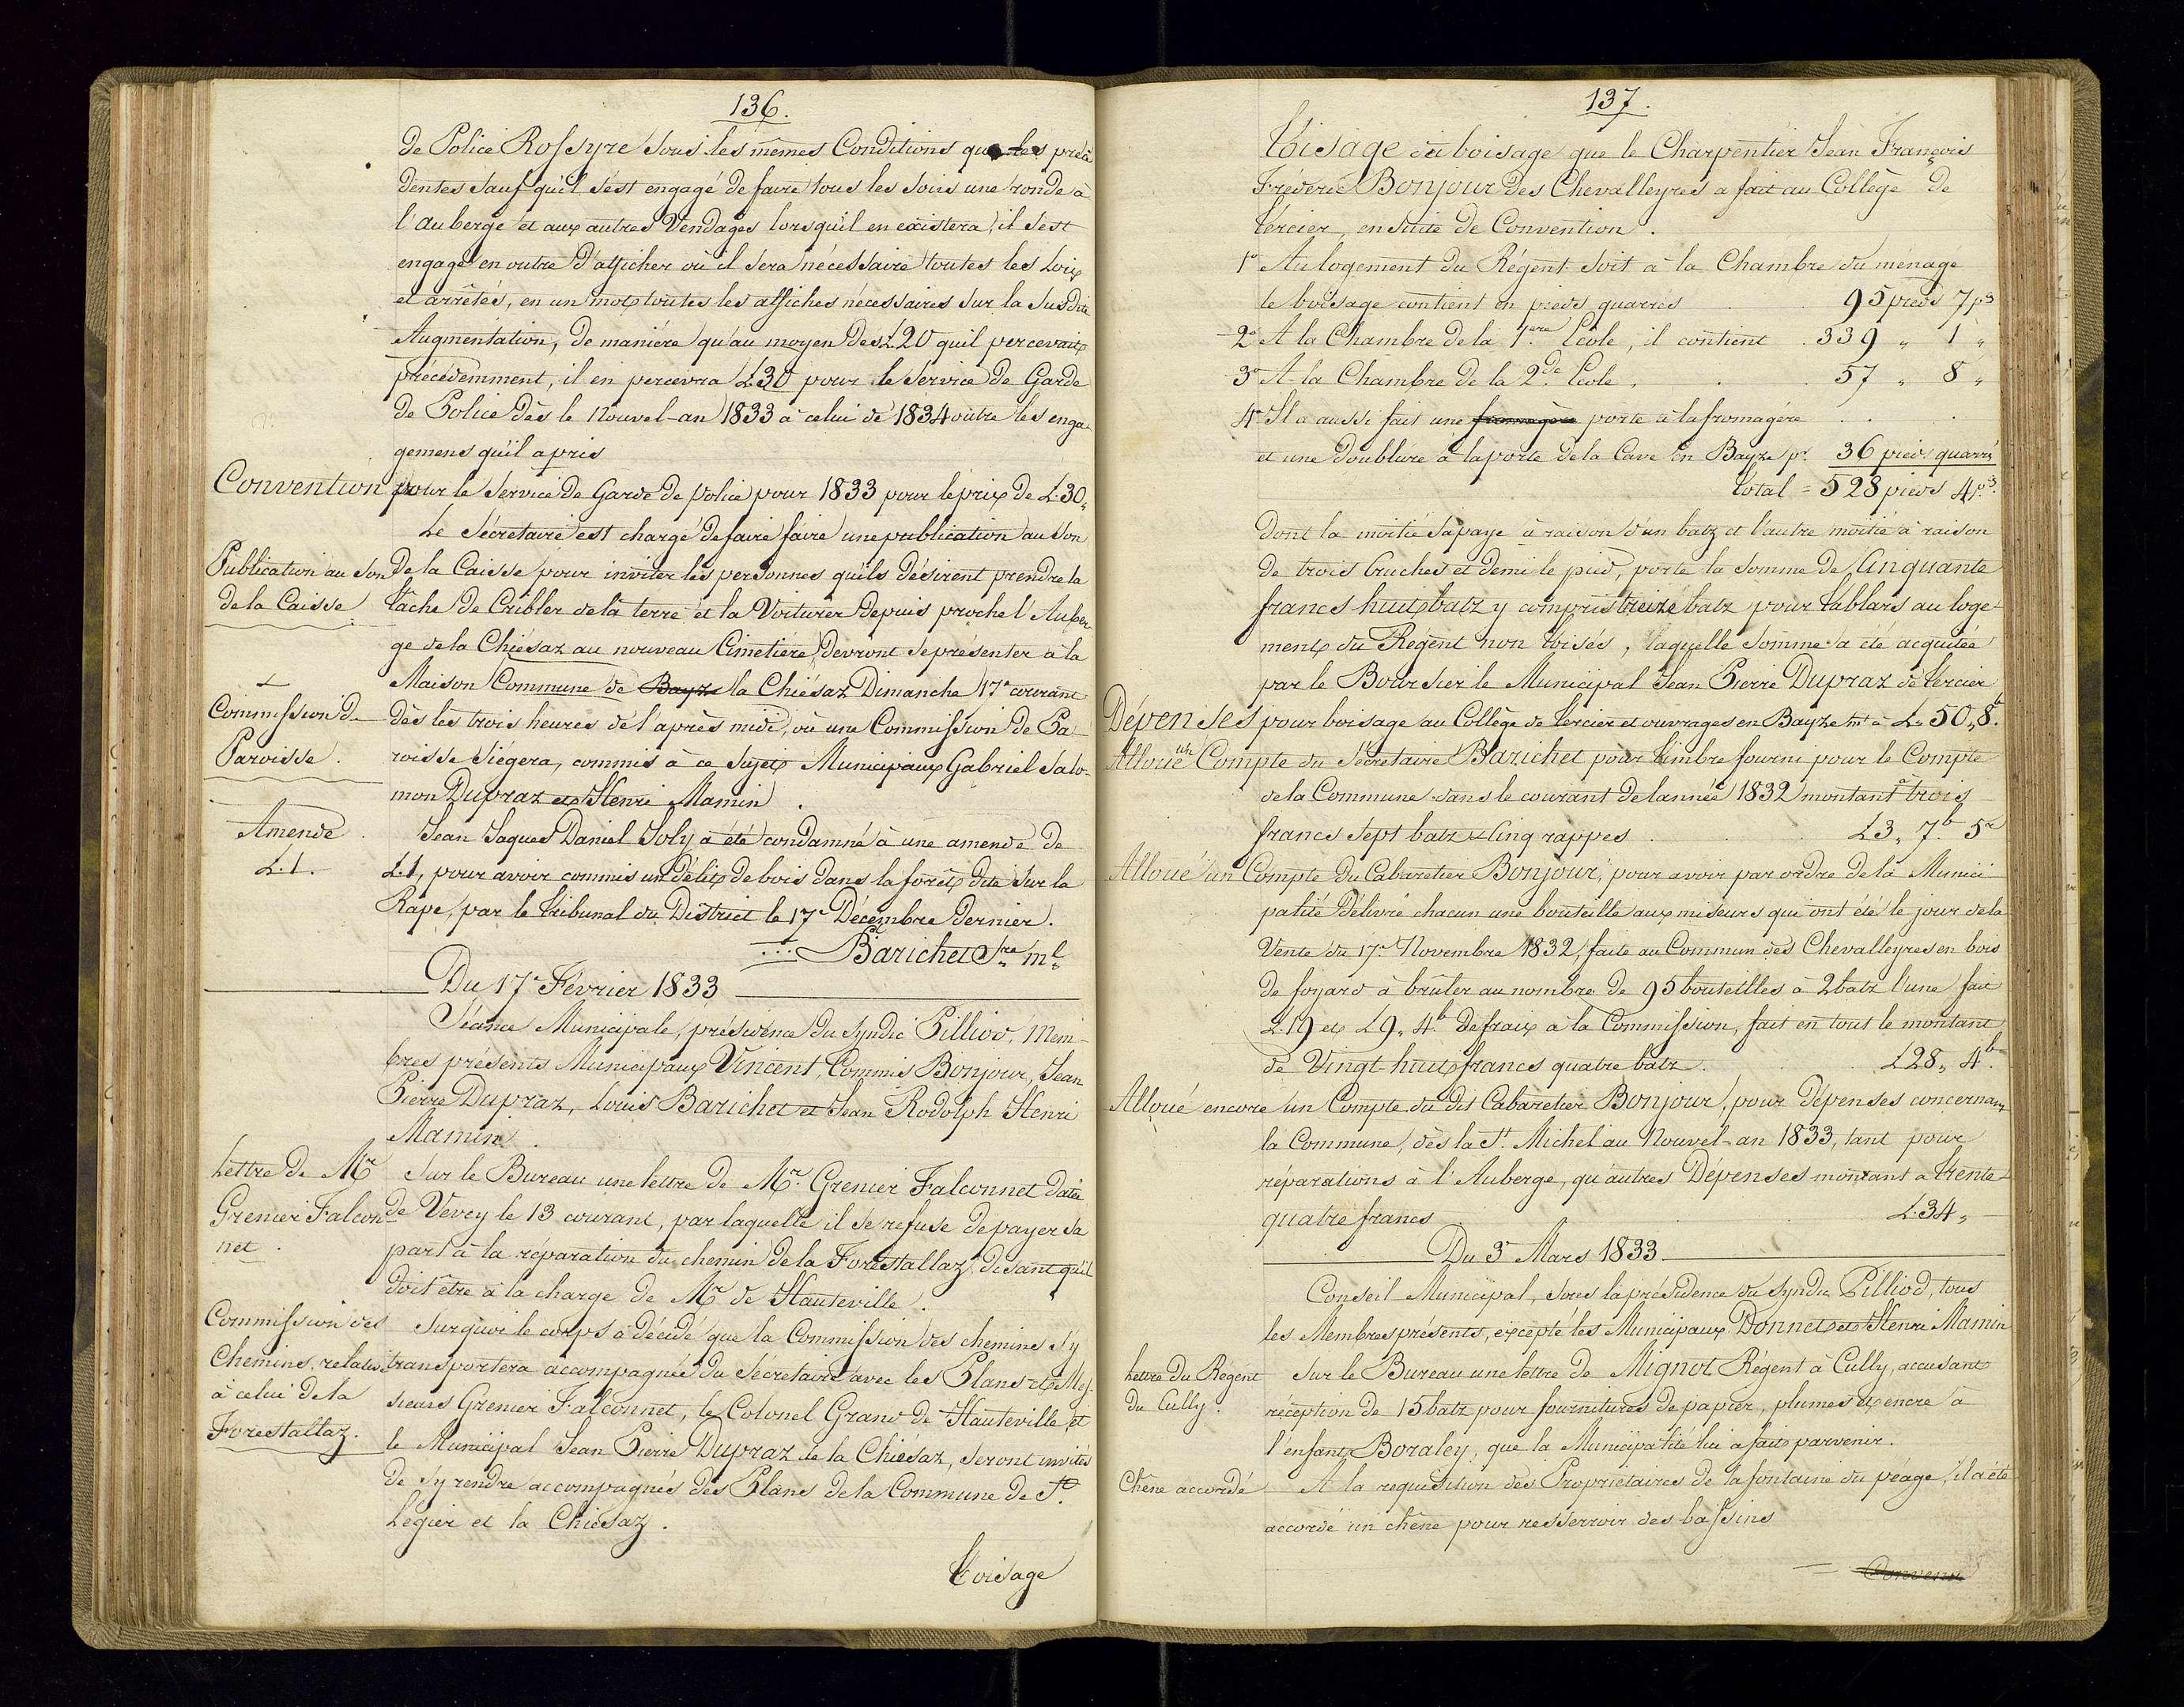 136.
de Police Rossyre sous les mêmes Conditions que les précé
dentes sauf qu'il s'est engagé de faire tous les soirs une ronde à
l'auberge et aux autres Vendages lorsqu'il en existera, il s'est
engagé en outre d'afficher où il sera nécessaire toutes les Loix
et arrêtés, en un mot toutes les affiches nécessaires sur la susdite
Augmentation, de manière qu'au moyen des L 20 qu'il percevait
précédemment, il en percevra L 30 pour le service de Garde
de Police dès le Nouvel-an 1833 à celui de 1834 outre les enga
gemens qu'il a pris
Convention pour le service de Garde de police pour 1833 pour le prix de L. 30 „
Le Sécretaire est chargé de faire faire une publication au son
Publication au son
de la Caisse
de la Caisse pour inviter les personnes qu'ils désirent prendre la
tâche de Cribler de la terre et la Voiturer depuis proche l'Auber
ge de la Chiésaz au nouveau Cimetière, devront se présenter à la
Maison Commune de Bayze la Chiésaz Dimanche 17e courant
Commission de
Paroisse.
dès les trois heures de l'après midi, où une Commission de Pa-
roisse siégera, commis à ce sujet Municipaux Gabriel Salo-
mon Dupraz et Henri Mamin.
Amende
L. 1.
Jean Jaques Daniel Joly a été condamné à une amende de
L. 1, pour avoir commis un délit de bois dans la forêt dite sur la
Rape, par le tribunal du District le 17e Décembre dernier.
Barichet Sre ml
Du 17e Février 1833
Séance Municipale, présidence du syndic Pilliod, Mem-
bres présents Municipaux Vincent, Commis Bonjour, Jean
Pierre Dupraz, Louis Barichet et Jean Rodolph Henri
Mamin.
Lettre de Mr
Grenier Falcon-
net.
Sur le Bureau une lettre de Mr. Grenier Falconnet datée
de Vevey le 13 courant, par laquelle il se refuse de payer sa
part à la réparation du chemin de la Forestallaz, disant qu'il
doit être à la charge de Mr de Hauteville.
Commission des
Chemins, relative
à celui de la
Forestallaz.
Sur quoi le corps a décidé que la Commission des chemins s'y
transportera accompagnée du Sécretaire avec les Plans et Mes-
sieurs Grenier Falconnet, le Colonel Grand de Hauteville et
le Municipal Jean Pierre Dupraz de la Chiésaz, seront invités
de s'y rendre accompagnés des Plans de la Commune de St.
Légier et la Chiésaz.
Toisage
137.
Toisage du boisage que le Charpentier Jean François
Fréderic Bonjour des Chevalleyres a fait au Collège de
Tercier, en suite de Convention.
1° Au logement du Régent soit à la Chambre du ménage
le boisage contient en pieds quarrés 95 pieds 7 ps
2° A la Chambre de la 1ere Ecole, il contient 339 „ 1 „
3° A la Chambre de la 2de Ecole, 57 „ 8 „
4° Il a aussi fait une porte à la fromagére
et une doublure à la porte de la Cave en Bayze pr. 36 pieds quarrés
total = 528 pieds 4 ps.
dont la moitié se paye à raison d'un batz et l'autre moitié à raison
de trois Cruches et demi le pied, porte la somme de Cinquante
francs huit batz y compris treize batz pour tablars au loge-
ment du Régent non toisés, laquelle somme a été acquitée
par le Boursier le Municipal Jean Pierre Dupraz de Tercier
Dépenses pour boisage au Collège de Tercier et ouvrages en Bayze mt à L. 50 „ 8 b.
Alloué un Compte du Sécretaire Barichet pour timbre fourni pour le Compte
de la Commune dans le courant de l'année 1832 montant à trois
francs sept batz & Cinq rappes L 3 „ 7 b 5 r
Alloué un Compte du Cabaretier Bonjour, pour avoir par ordre de la Munici-
palité délivré chacun une bouteille aux miseurs qui ont été le jour de la
Vente du 17e Novembre 1832, faite au Commun des Chevalleyres en bois
de foyard à brûler au nombre de 95 bouteilles à 2 batz l'une fait
L 19 et L 9 „ 4 b de fraix à la Commission, fait en tout le montant
de Vingt-huit francs quatre batz. L 28 „ 4 b
Alloué encore un Compte du dit Cabaretier Bonjour, pour dépenses concernant
la Commune, dès la St. Michel au Nouvel-an 1833, tant pour
réparations à l'Auberge, qu'autres Dépenses montant à trente
quatre francs L. 34 „
Du 3e Mars 1833
Conseil Municipal, sous la présidence du syndic Pilliod, tous
les Membres présents, excepté les Municipaux Donnet et Henri Mamin
Lettre du Régent
du Cully.
Sur le Bureau une lettre de Mignot Régent à Cully, accusant
réception de 15 batz pour fournitures de papier, plumes et encre à
l'enfant Boraley, que la Municipalité lui a fait parvenir.
Chêne accordé
A la requisition des Propriétaires de la fontaine du péage, il a été
accordé un chêne pour resserroir des bassins